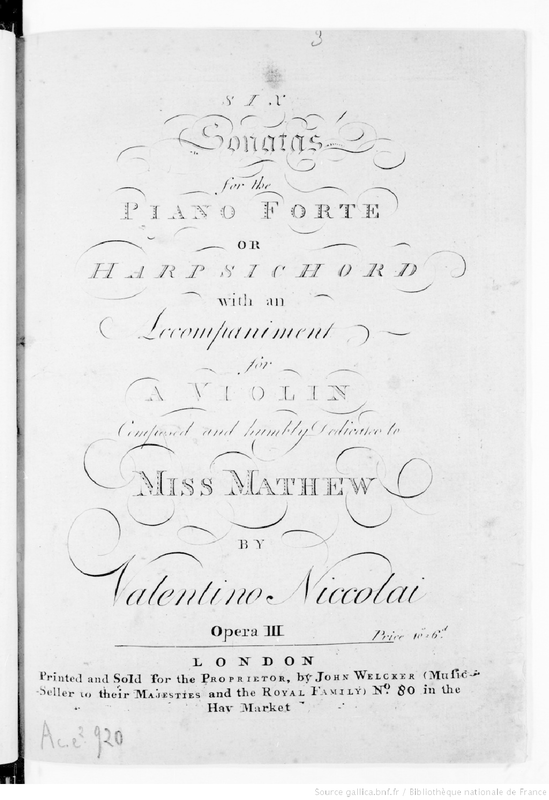 3
SIX
Sonatas
for the
PIANO FORTE
OR
HARPSICHORD
with an
Accompaniment
for
A VIOLIN
Composed and humbly Dedicated to
MISS MATHEW
BY
Valentino Niccolai
Opera III
Price 10s 6d
LONDON
Printed and Sold for the PROPRIETOR, by JOHN WELCKER (Music
Seller to their MAJESTIES and the ROYAL FAMILY) No 80 in the
Hay Market
Ac.e2 920
Source gallica.bnf.fr / Bibliothèque nationale de France